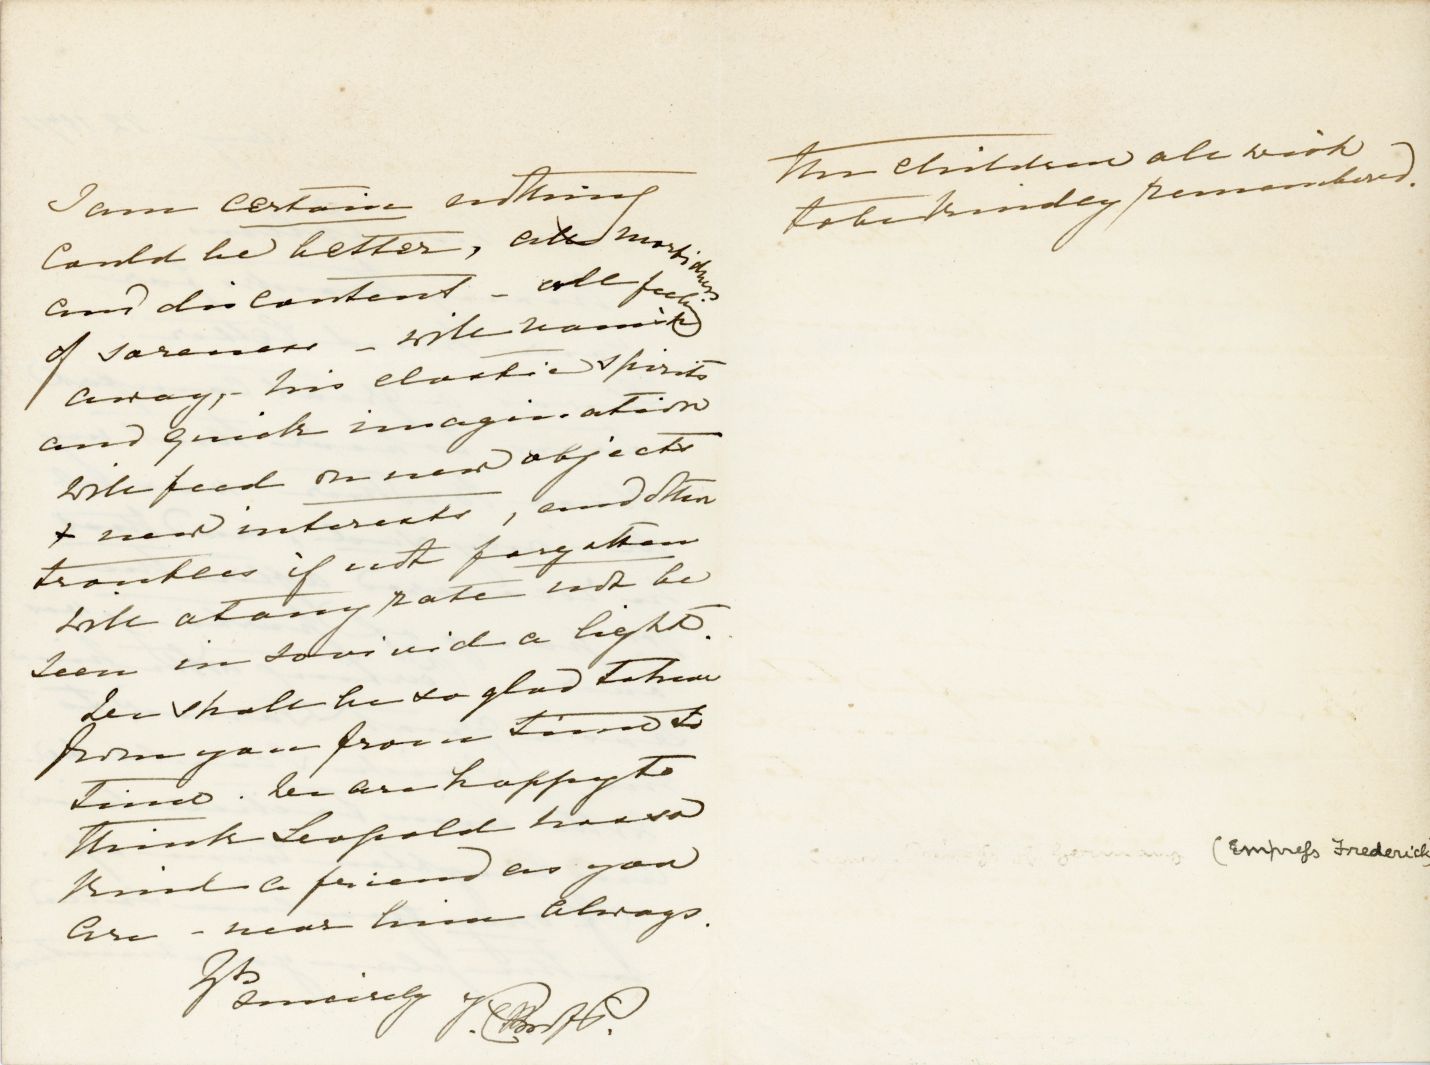 I am certain nothing
could be better, all morbidness
and discontent - all feeling
of soreness - will vanish
away, - his elastic spirits
and quick imagination
will feed on new objects
+ new interests, and other
troubles if not forgotten
will at any rate not be
seen in so vivid a light.
We shall be so glad to hear
from you from time to
time. We are happy to
think Leopold has so
kind a friend as you
are - near him always.
Yrs
sincerely
the children all wish
to be kindly remembered.
(Empress Frederick)